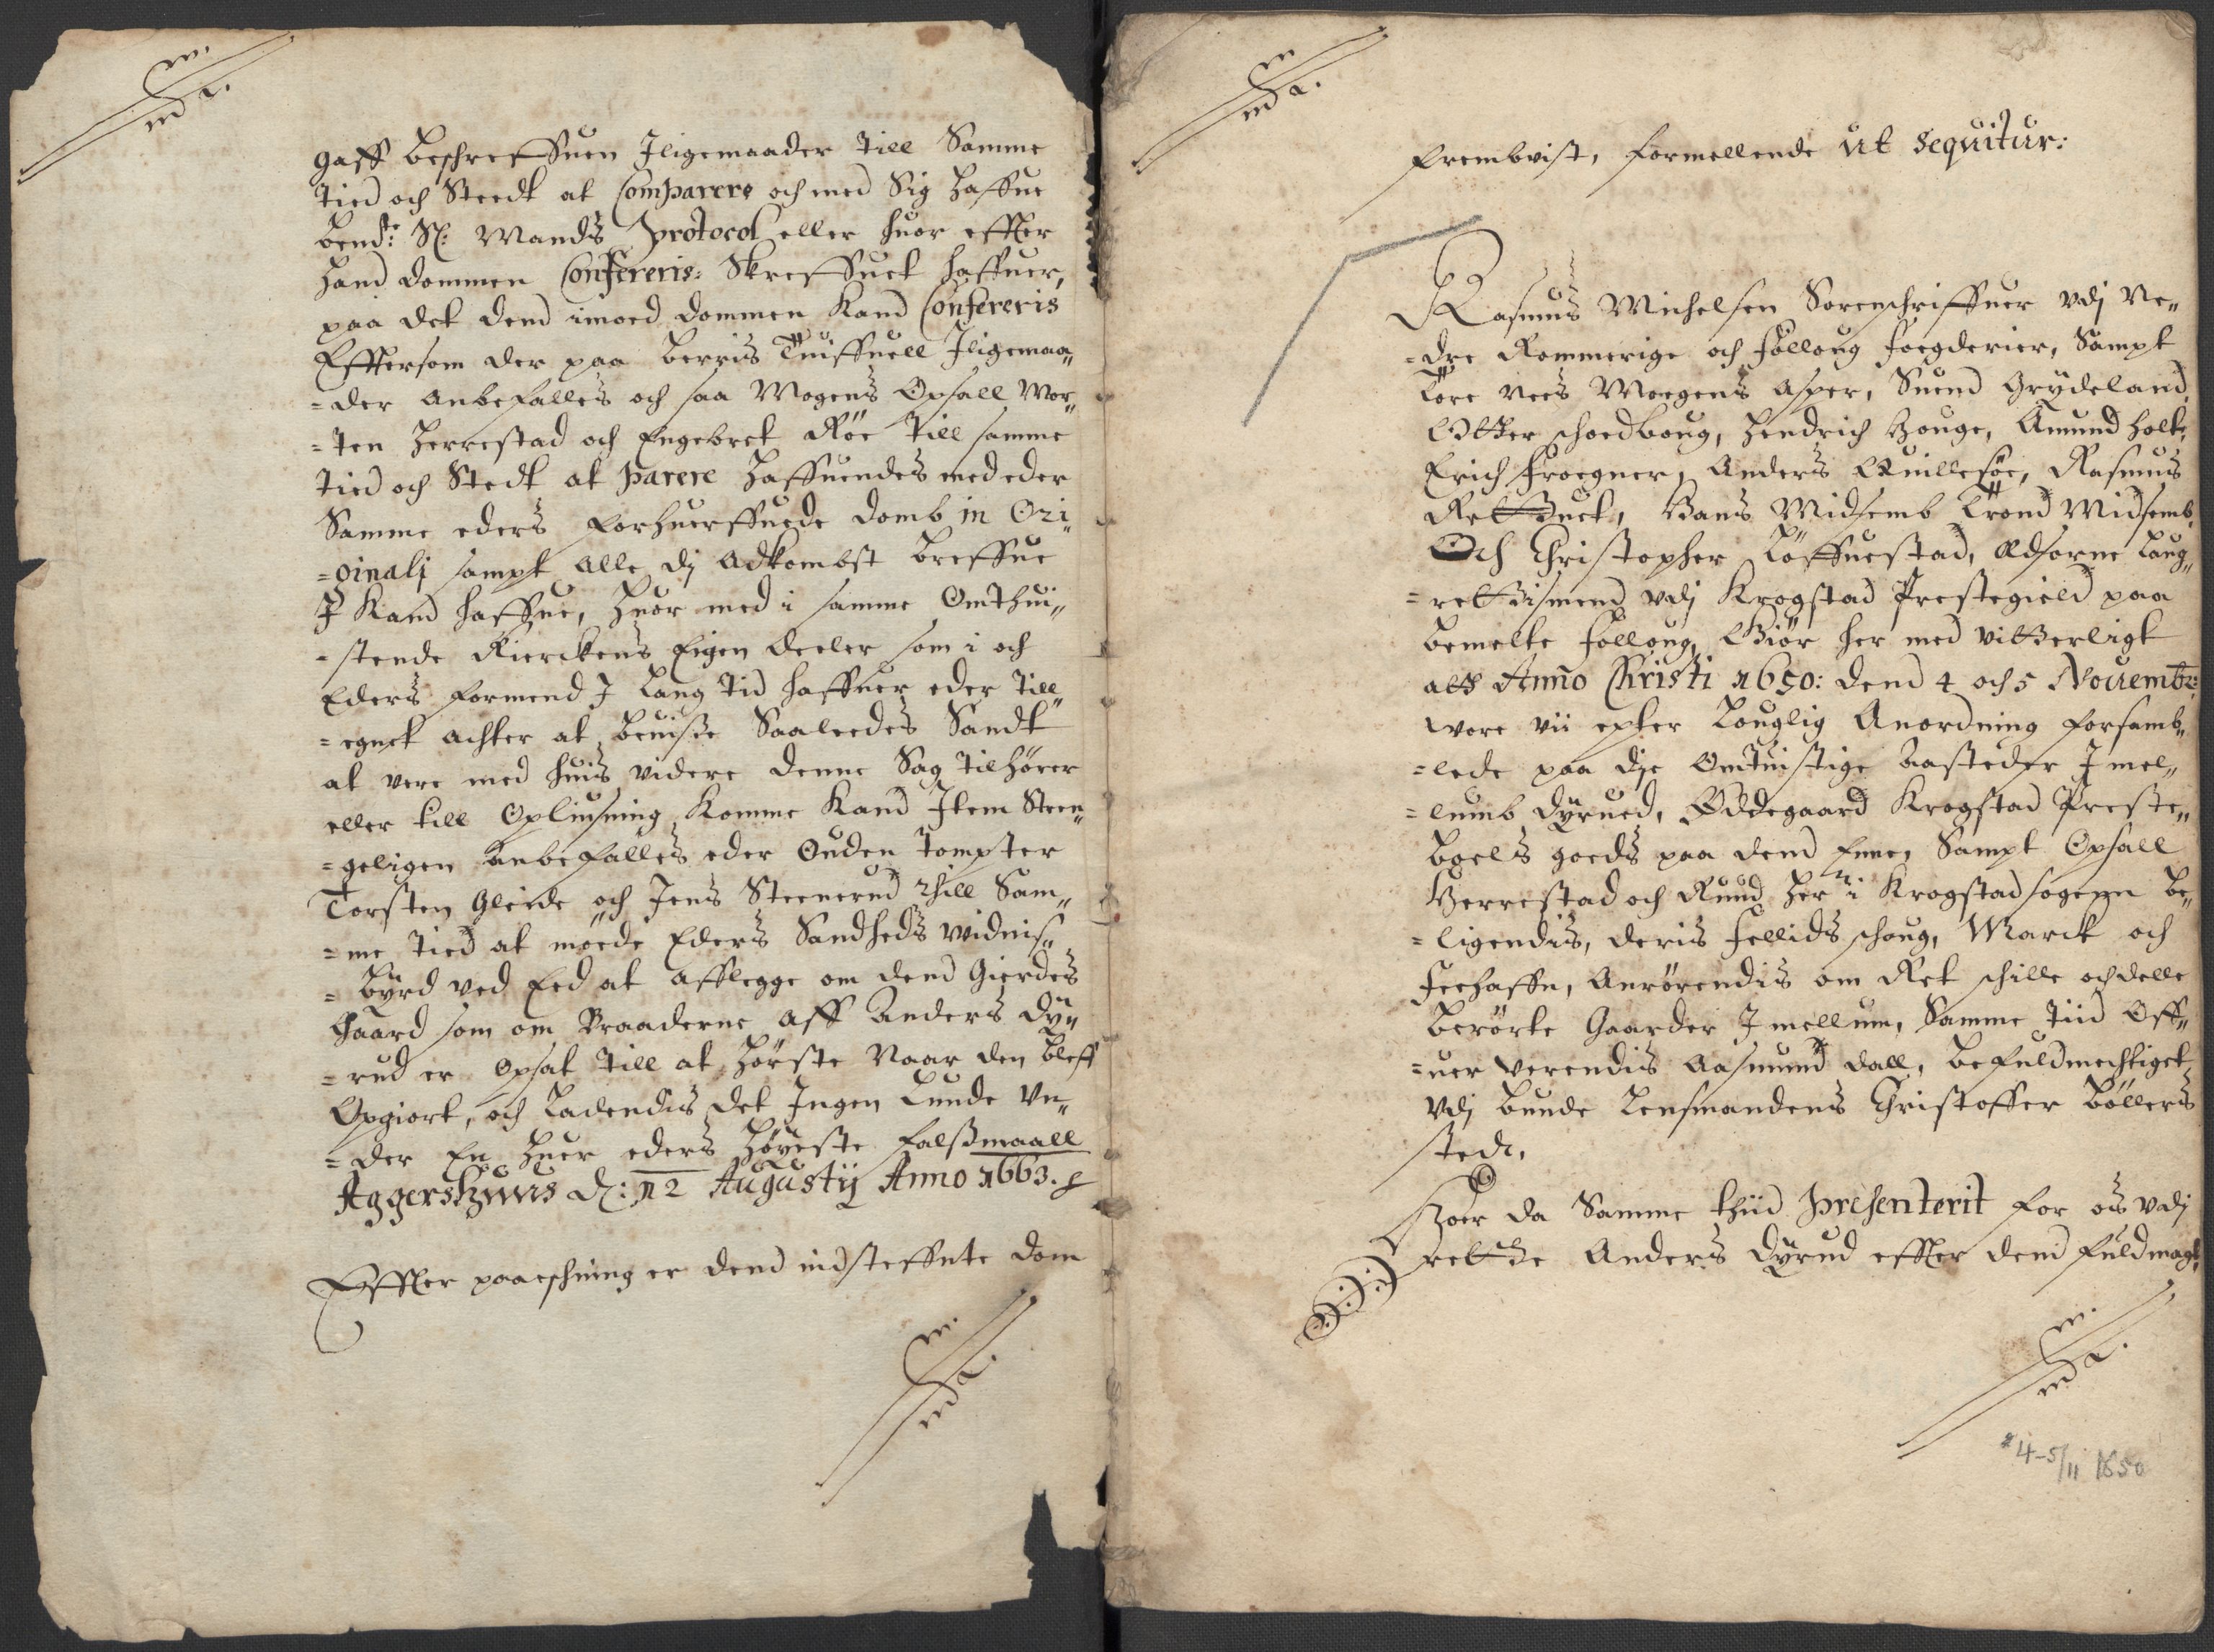 m.
md a.
gaff beschreffuen Iligemaader till Samme
tied och Steedt at Comparere och med Sig haffue
bend:te Sl: Mands protocol eller huor effter
hand dommen Confereris: Skreffuet haffuer,
paa det dend imoed dommen kand Confereris
Efftersom der paa berris Tuiffuell Iligemaa„
=der anbefalles och saa Mogens Opsall Mor„
=ten herrestad och Engebret Røe till samme
tied och Stedt at parere haffuendes med eder
Samme eders forhuerffuede domb in Ori„
=ginalj sampt alle dj adkombst breffue
I kand haffue, huor med i samme Omthui„
=stende Kierckens Eigen deeler som i och
Eders formend I lang tid haffuer eder till„
=egnet achter at beuisse Saaleedes Sandt
at vere med huis videre denne Sag tilhører
eller till Opliusning komme kand Item Steen„
=geligen anbefalles eder Ouden Tompter
Torsten Gleide och Jens Steenerud thill Sam„
=me tied at møede Eders Sandheds widnis„
=byrd ved Eed at afflegge om dend Gierdes
gaard som om Braaderne aff Anders Dy„
=rud er Opsat till at hørste Naar den bleff
Opgiort, och ladendis det Ingen lunde Vn„
=der En huer eders høyeste falsmaall
Aggershuus d: 12 Augustij Anno 1663.
Effter paaeschning er dend indsteffnte dom
m.
md a.
m.
md a.
frembvist, formellende ut sequitur:
Rasmus Michelsen Sorenschriffuer vdj Ne„
=dre Rommerige och folloug foegderier, Sampt
Tore Nees Moegens Asper, Suend Grydeland,
Otther schoedboug, Hendrich Houge, Amund holt,
Erich froegner, Anders Quillesøe, Rasmus
Hans Midsemb Trond Midsemb,
Och Christopher Løffuestad, Edsorne laug„
=rettismend vdj Krogstad Prestegield paa
bemelte folloug, Giør her med vitterligt
att Anno Christi 1650: dend 4 och 5 Nouembr:
wore vii epter louglig Anordning forsamb„
=lede paa dje Omtuistige aasteder I mel„
=lumb Dyrued, Øddegaard Krogstad Preste„
boels goeds paa dend Enne, Sampt Opsall
Herrestad och Rund her i Krogstad sogenn be„
=ligendis, deris fellids schoug, Marck och
feehaffn, Anrørendis om Ret schille och delle
berørte Gaarder I mellum, Samme tiid Off„
=uer verendis Aasmund Dall, befuldmechtiget
vdj bunde Lensmandens Christoffer Bøllers
sted,
Hoer da Samme thiid presenterit for os vdj
rette Anders Dyrud effter dend fuldmagt
m.
md a.
4-5/11 1650